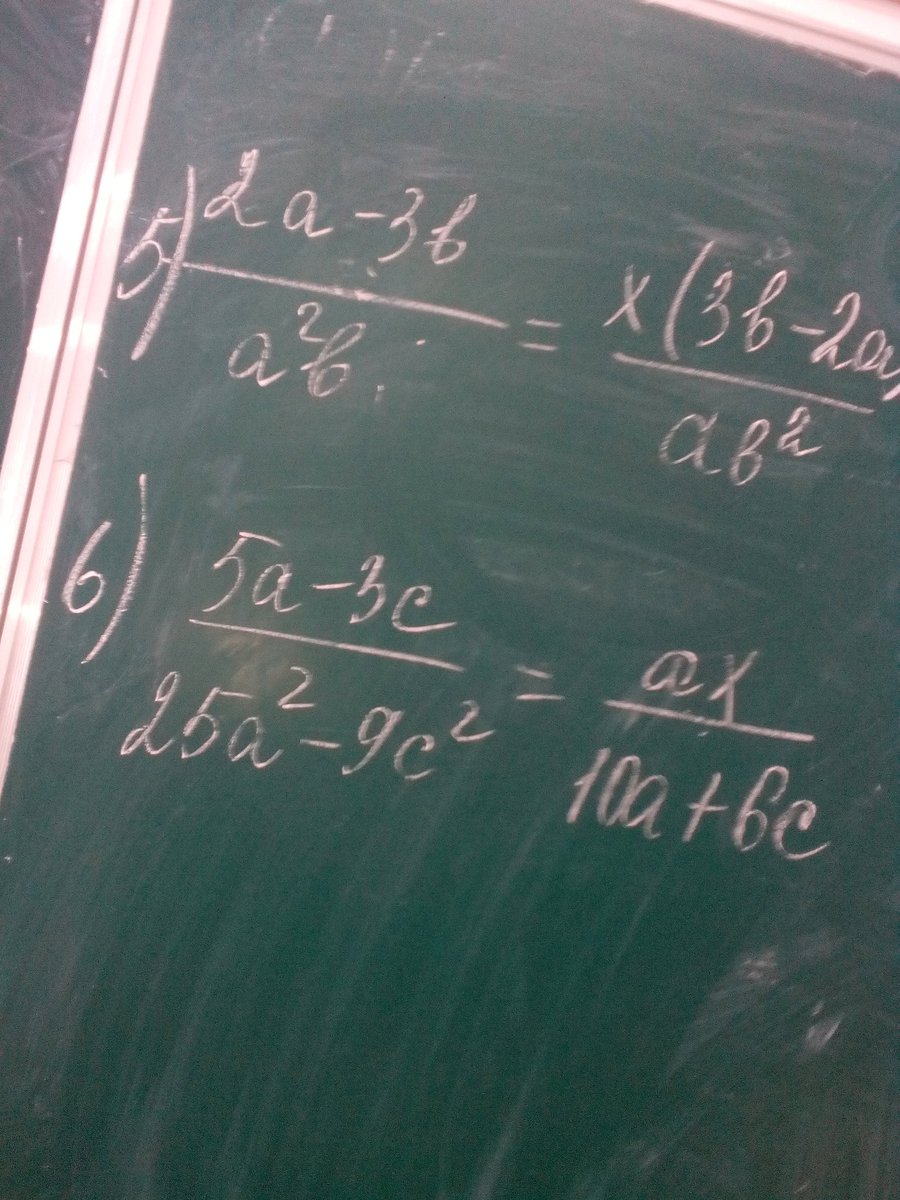 5) (2a-3b)/(a²b) = (x(3b-2a))/(ab²)
6) (5a-3c)/(25a²-9c²) = (ax)/(10a+6c)